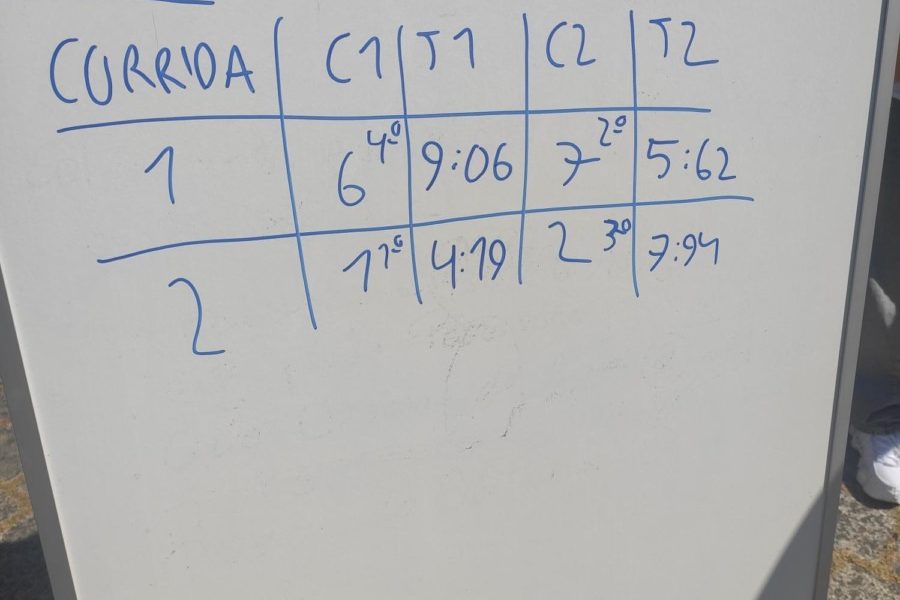 CORRIDA C1 T1 C2 T2
1 6 4º 9:06 7 2º 5:62
2 1 1º 4:19 2 3º 7:94